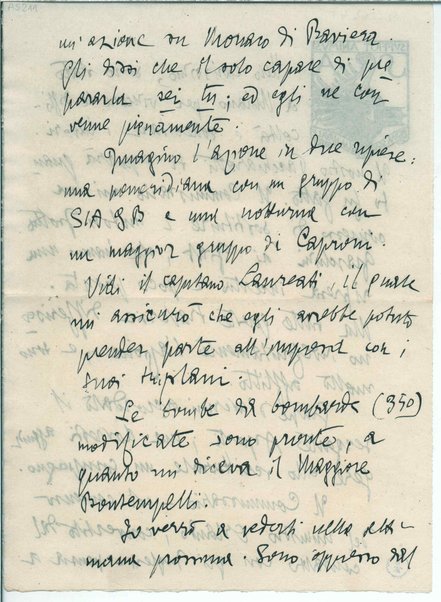 un'azione su Monaco di Baviera.
Gli dissi che il solo capace di pre
pararla sei tu; ed egli ne con
venne pienamente.
Immagino l'azione in due riprese:
una meridiana con un gruppo di
SIA 9B e una notturna con
un maggior gruppo di Caproni.
Vidi il capitano Laureati, il quale
mi assicurò che egli avrebbe potuto
prender parte all'impresa con i
suoi triplani.
Le bombe da bombarda (340)
modificate sono pronte, a
quanto mi diceva il Maggiore
Bontempelli.
Io verrò a vederti nella setti-
mana prossima. Sono oppresso dal